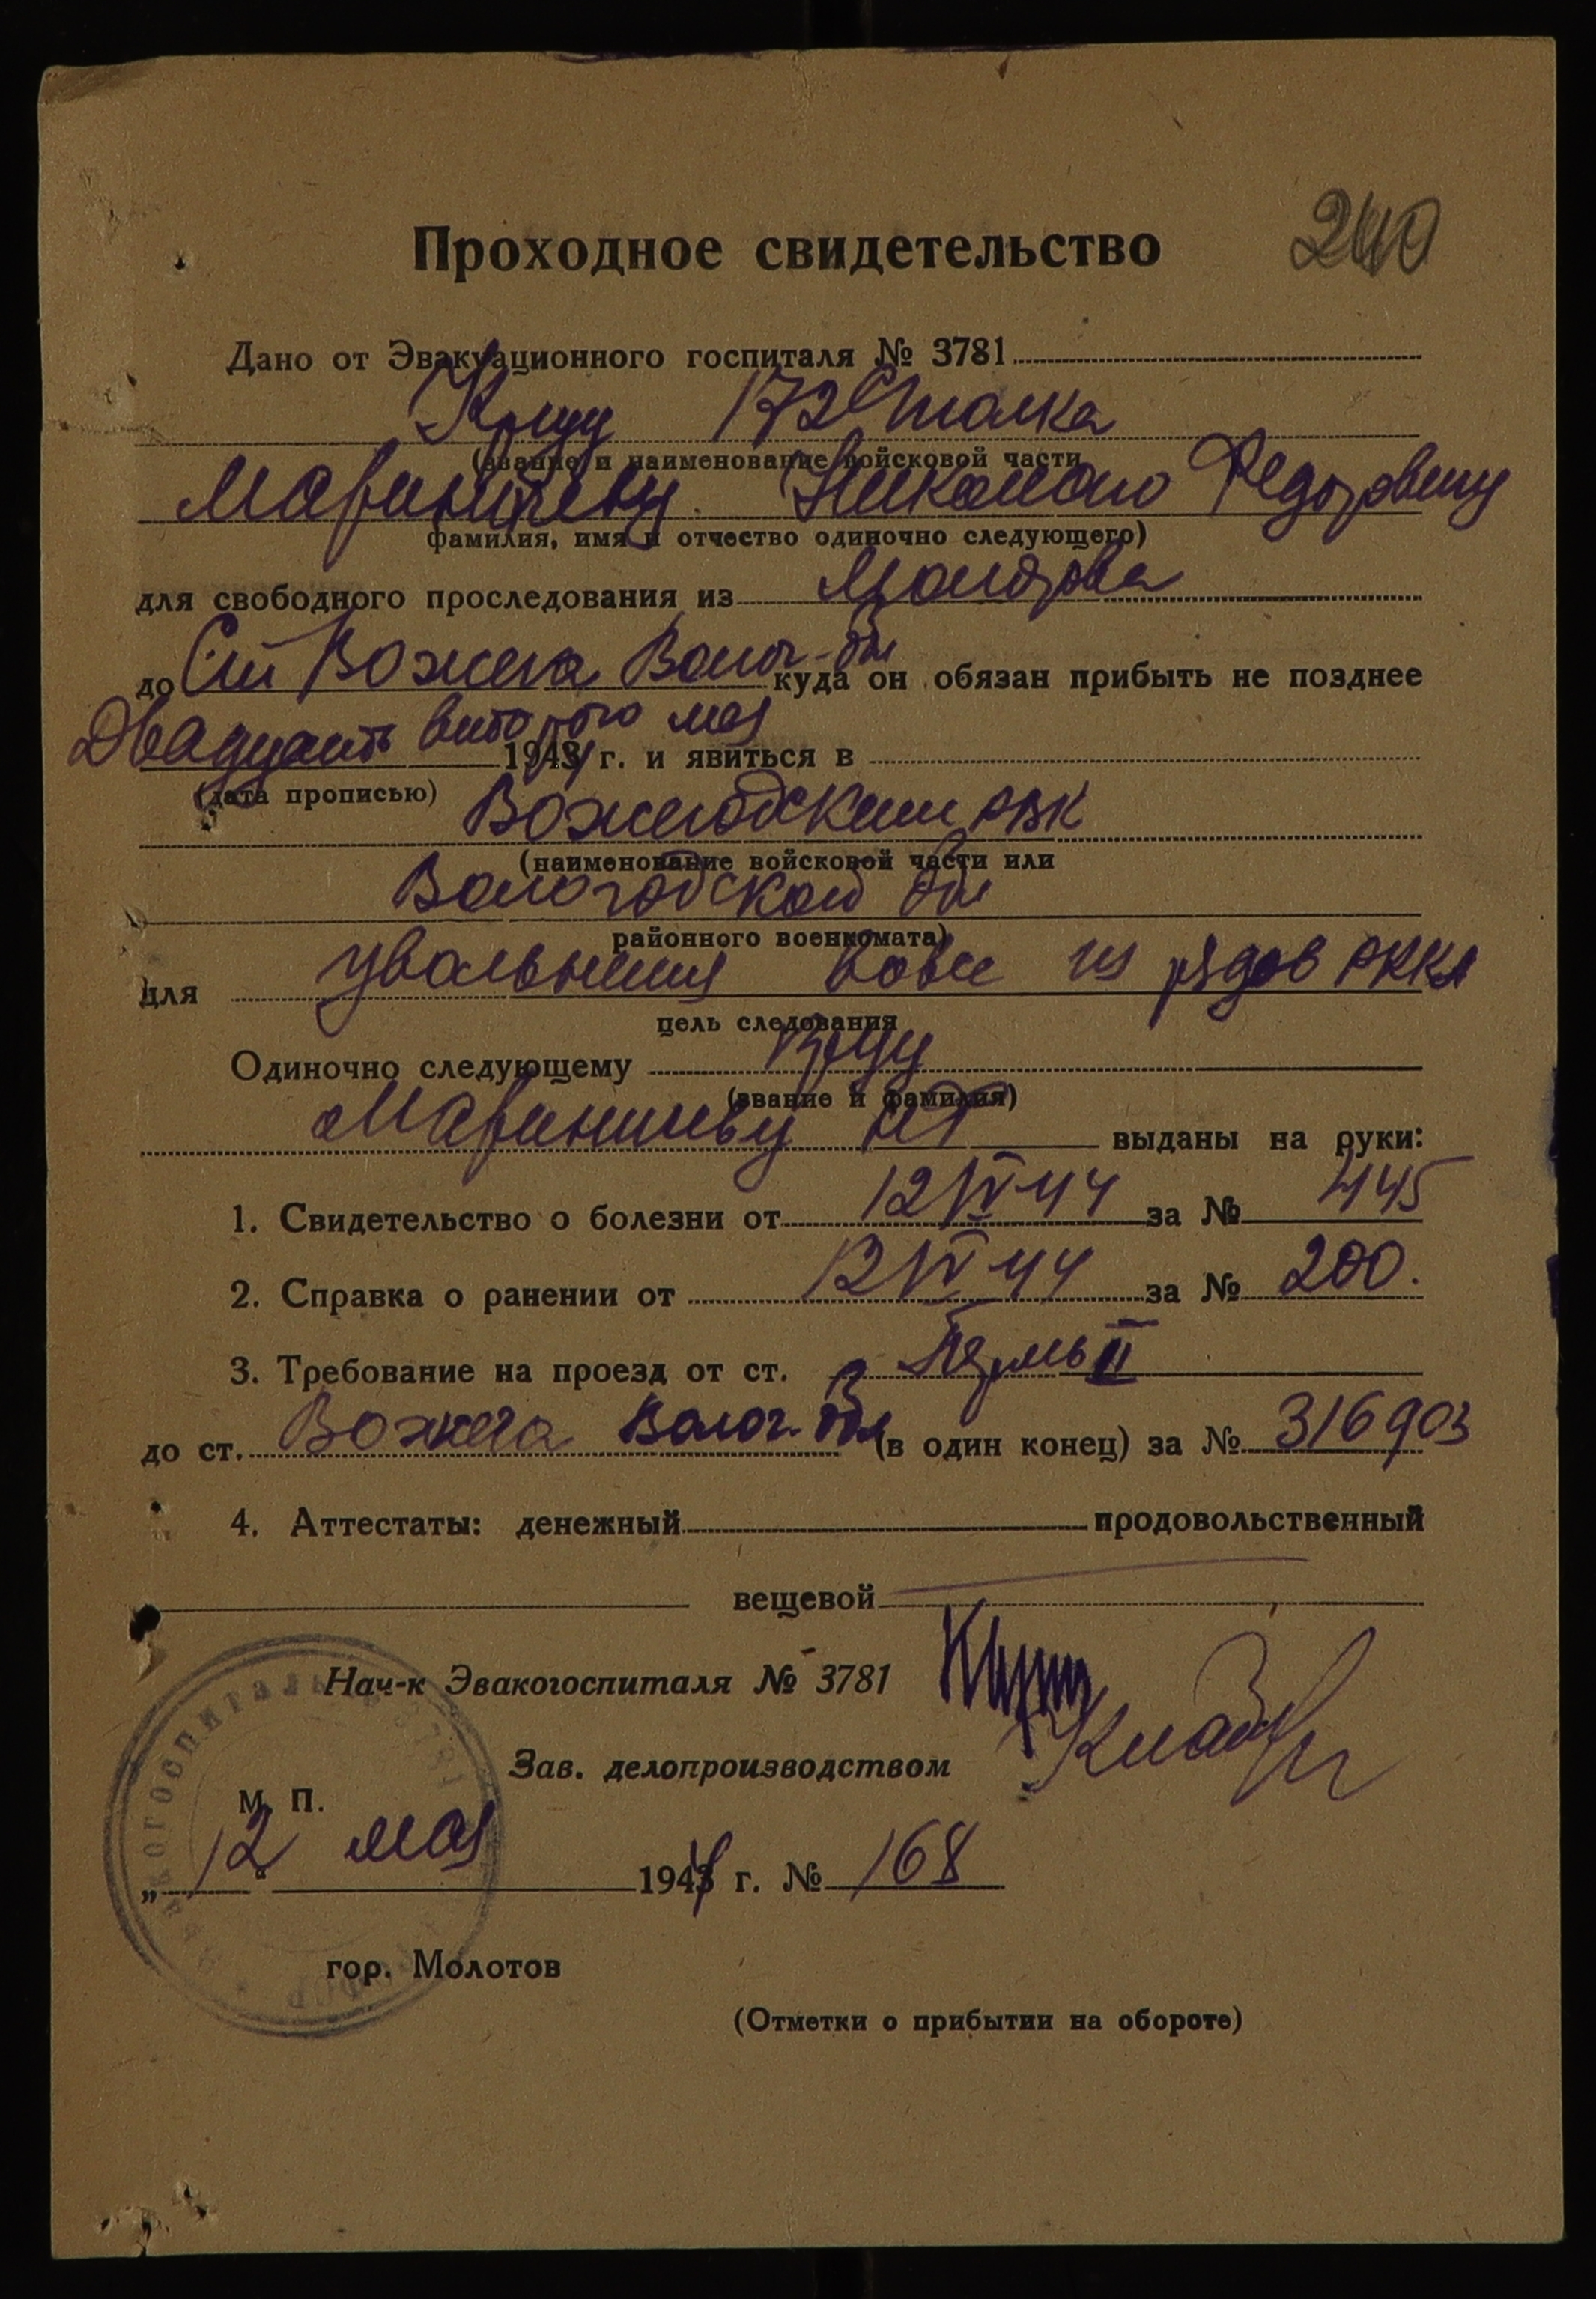 Проходное свидетельство 240
Дано от Эвакуационного госпиталя № 3781
Кр-цу 172 СП полка
(звание и наименование войсковой части,
Мариничеву Николаю Федоровичу
фамилия, имя и отчество одиночно следующего)
для свободного проследования из Молотова
до Ст Вожега Волог-обл куда он обязан прибыть не позднее
Двадцать второго мая 1944 г. и явиться в
(дата прописью)
Вожегодский РВК
(наименование войсковой части или
Вологодской обл
районного военкомата)
для увольнения вовсе из рядов РККА
цель следования
Одиночно следующему
(звание и фамилия)
Мариничеву НФ выданы на руки:
1. Свидетельство о болезни от 12/IV-44 за № 445
2. Справка о ранении от 12/IV-44 за № 200.
3. Требование на проезд от ст. Пермь II
до ст. Вожега Волог-обл (в один конец) за № 316903
4. Аттестаты: денежный продовольственный
вещевой
Нач-к Эвакогоспиталя № 3781
Зав. делопроизводством
М. П.
„12“ мая 1944 г. № 168
гор. Молотов
(Отметки о прибытии на обороте)